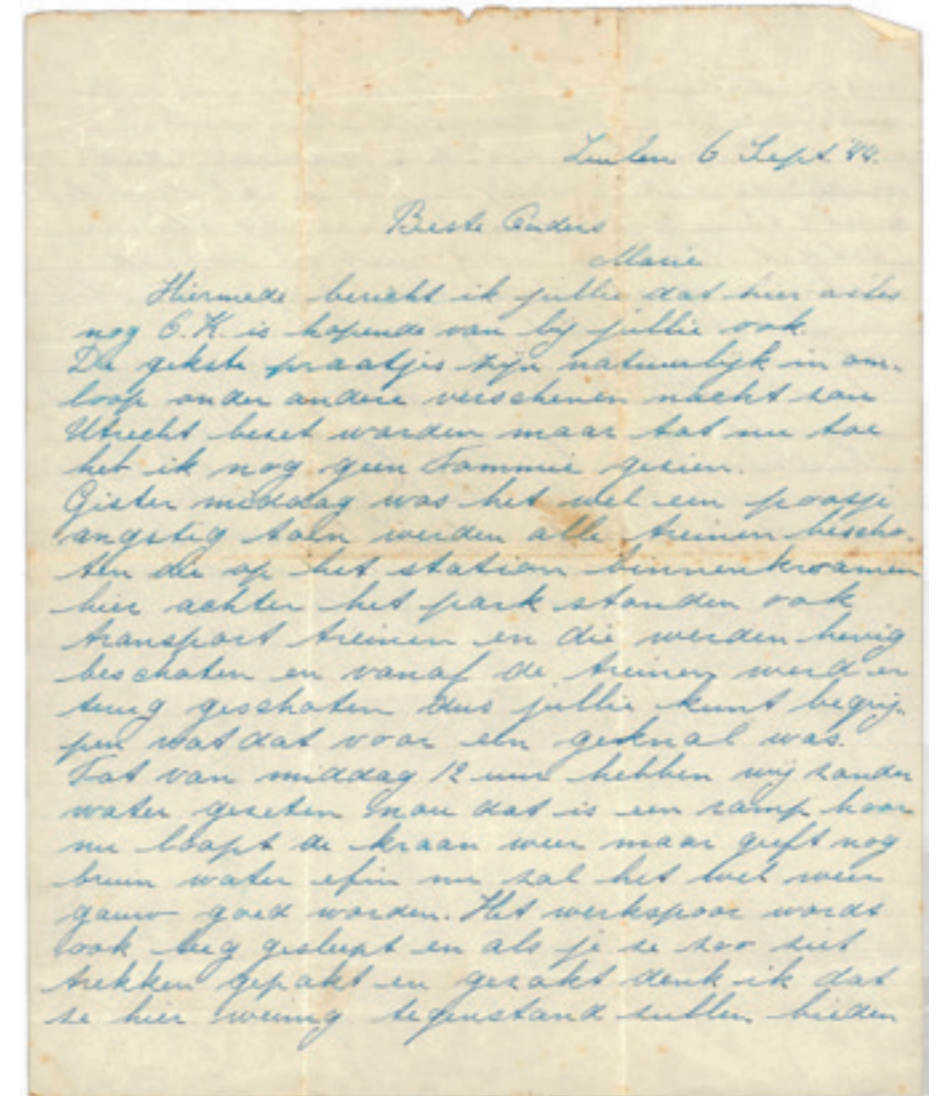 Zuilen 6 Sept. '44.
Beste Ouders
Marie
Hiermede bericht ik jullie dat hier alles
nog O.K. is hopende van bij jullie ook.
De gekste praatjes zijn natuurlijk in om-
loop onder andere verschenen nacht zou
Utrecht beset worden maar tot nu toe
heb ik nog geen Tommie gezien.
Gister middag was het wel een poosje
angstig toen werden alle treinen bescho-
ten die op het station binnenkwamen
hier achter het park stonden ook
transport treinen en die werden hevig
beschoten en vanaf de treinen werd er
terug geschoten dus jullie kunt begrij-
pen wat dat voor een geknal was.
Tot van middag 12 uur hebben wij zonder
water gezeten nou dat is een ramp hoor
nu loopt de kraan weer maar geeft nog
bruin water efin nu zal het wel weer
gauw goed worden. Het werkspoor wordt
ook leeg gesleept en als je ze zoo ziet
trekken gepakt en gezakt denk ik dat
ze hier weinig tegenstand zullen bieden